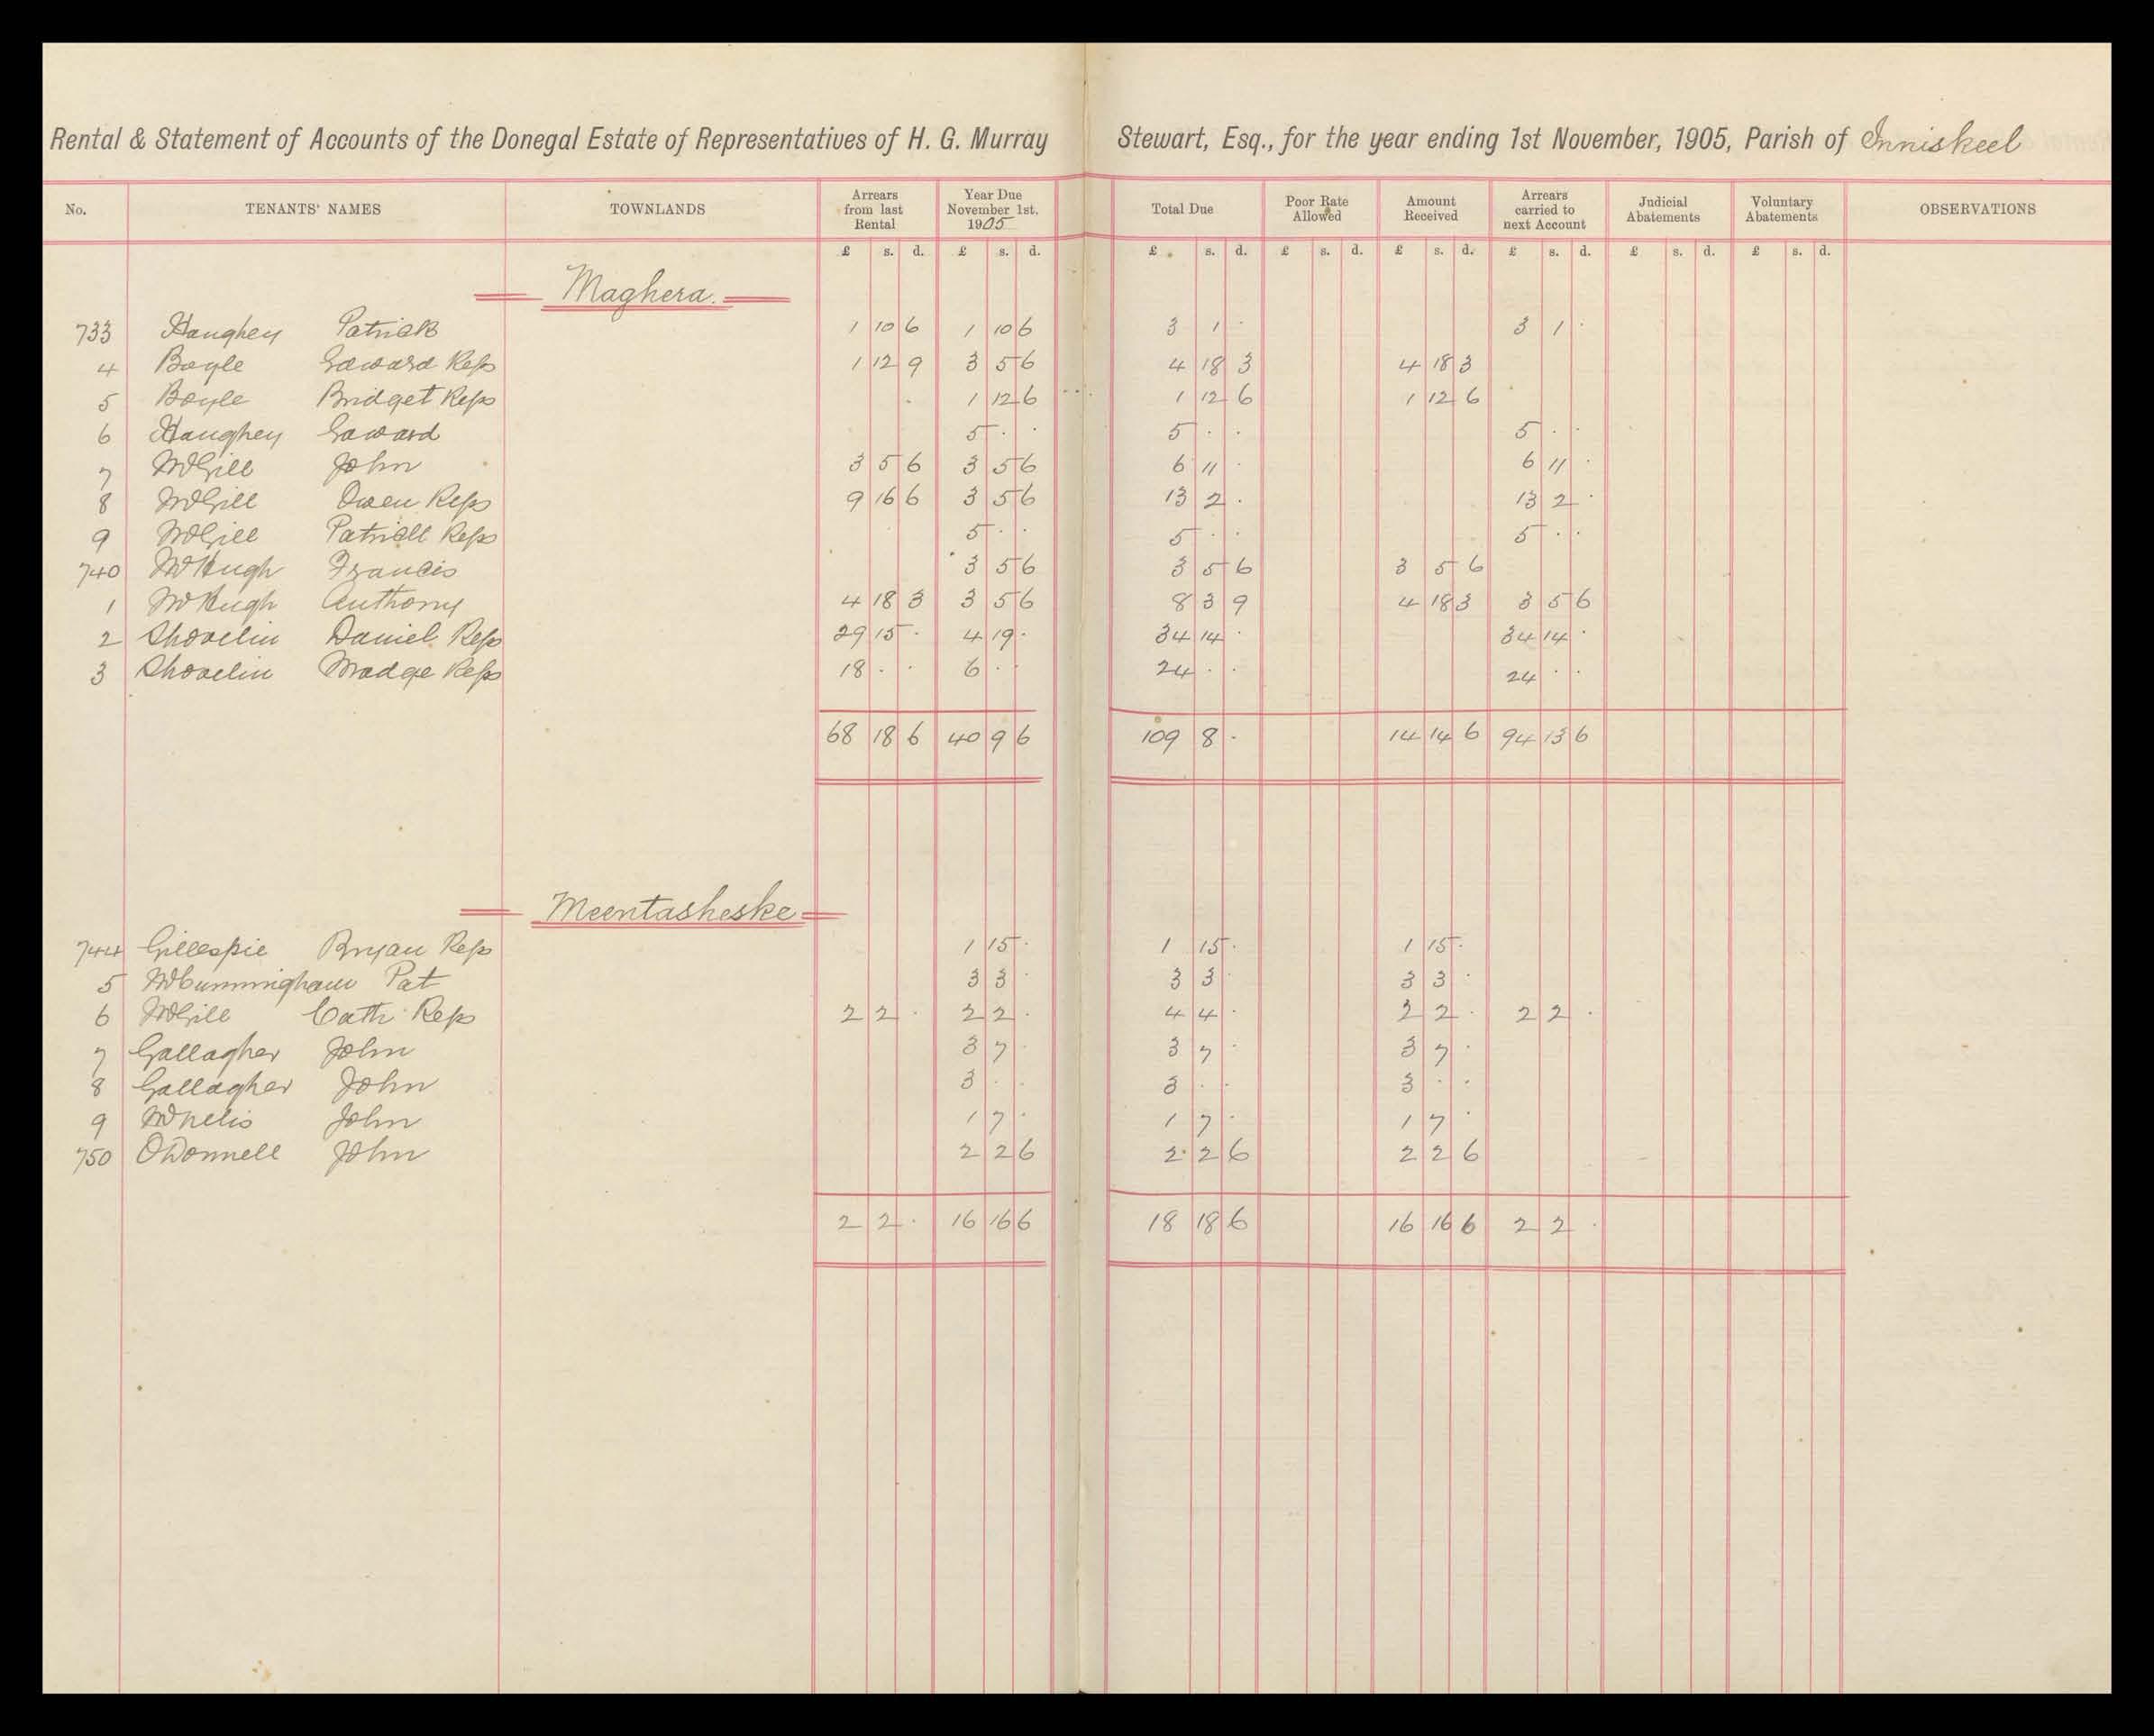 Rental & Statement of Accounts of the Donegal Estate of Representatives of H. G. Murray Stewart, Esq., for the year ending 1st November, 1905, Parish of Inniskeel
No. TENANTS' NAMES TOWNLANDS Arrears from last Rental Year Due November 1st. 1905 Total Due Poor Rate Allowed Amount Received Arrears carried to next Account Judicial Abatements Voluntary Abatements OBSERVATIONS
£ s. d. £ s. d. £ s. d. £ s. d. £ s. d. £ s. d. £ s. d. £ s. d.
Maghera.
733 Haughey Patrick 1 10 6 1 10 6 3 1 · 3 1 ·
4 Boyle Edward Reps 1 12 9 3 5 6 4 18 3 4 18 3
5 Boyle Bridget Reps 1 12 6 1 12 6 1 12 6
6 Haughey Edward 5 · · 5 · · 5 · ·
7 McGill John 3 5 6 3 5 6 6 11 · 6 11 ·
8 McGill Owen Reps 9 16 6 3 5 6 13 2 · 13 2 ·
9 McGill Patrick Reps 5 · · 5 · · 5 · ·
740 McHugh Francis 3 5 6 3 5 6 3 5 6
1 McHugh Anthony 4 18 3 3 5 6 8 3 9 4 18 3 3 5 6
2 Shovelin Daniel Reps 29 15 · 4 19 · 34 14 · 34 14 ·
3 Shovelin Madge Reps 18 · · 6 · · 24 · · 24 · ·
68 18 6 40 9 6 109 8 · 14 14 6 94 13 6
Meentasheske
744 Gillespie Bryan Reps 1 15 · 1 15 · 1 15 ·
5 McCunningham Pat 3 3 · 3 3 · 3 3 ·
6 McGill Cath Reps 2 2 · 2 2 · 4 4 · 2 2 · 2 2 ·
7 Gallagher John 3 7 · 3 7 · 3 7 ·
8 Gallagher John 3 · · 3 · · 3 · ·
9 McNelis John 1 7 · 1 7 · 1 7 ·
750 O'Donnell John 2 2 6 2 2 6 2 2 6
2 2 · 16 16 6 18 18 6 16 16 6 2 2 ·